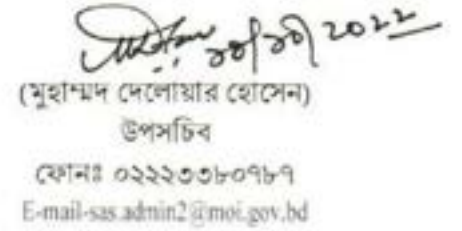 ১০/১০/২০২২
(মুহাম্মদ দেলোয়ার হোসেন)
উপসচিব
ফোনঃ ০২২২৩৩৮০৭৮৭
E-mail-sas.admin2@moi.gov.bd